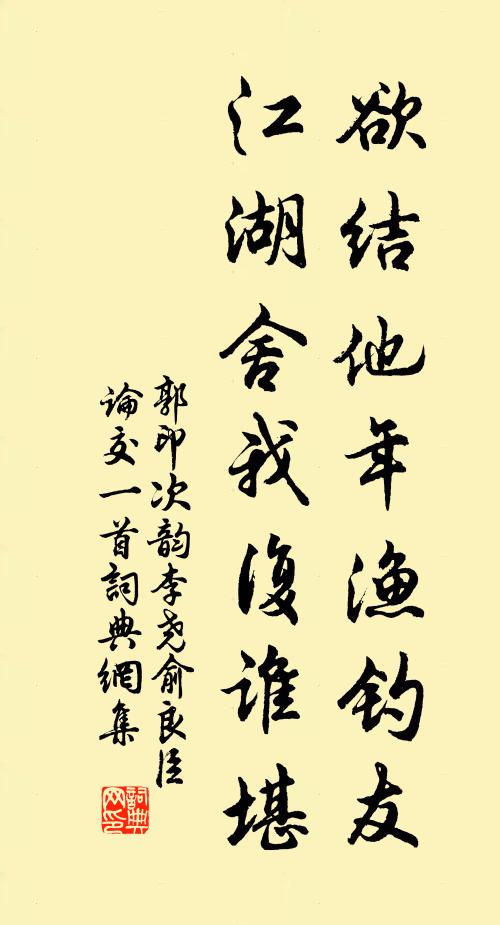 欲结他年渔钓友
江湖舍我復谁堪
郭印次韵李尧俞良臣
论交一首詞典網集
詞典
网印